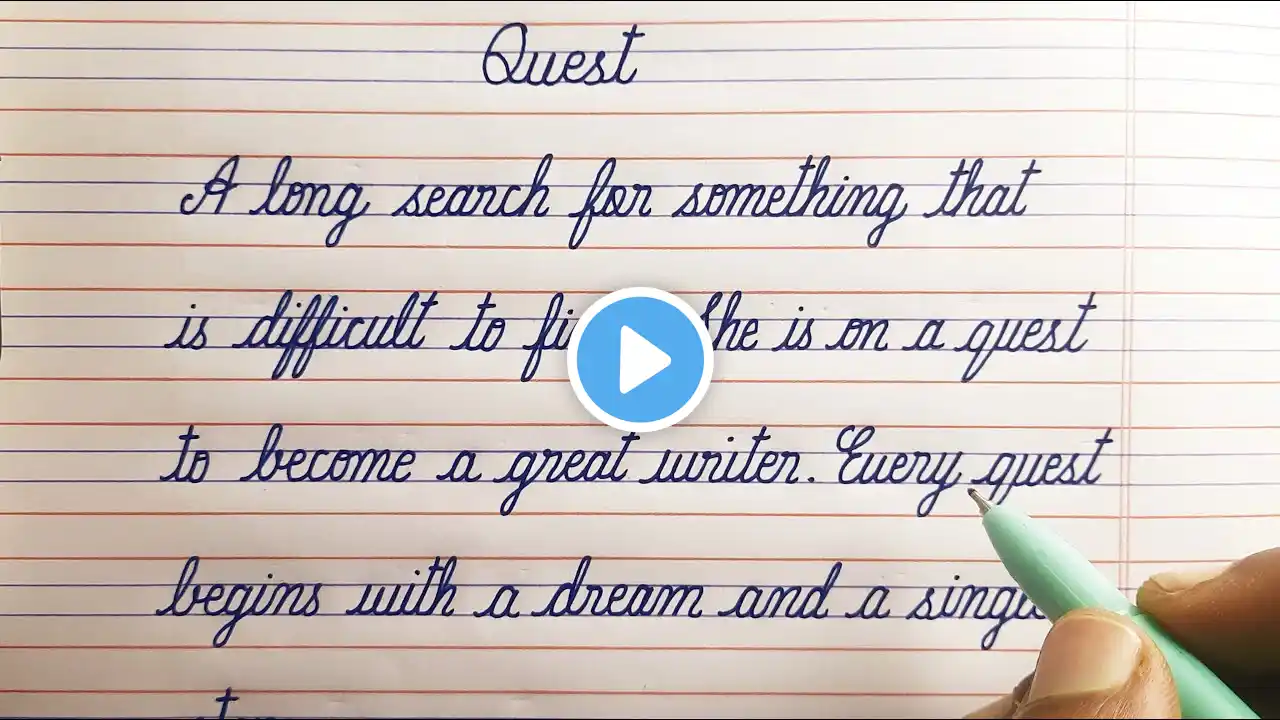 Quest
A long search for something that
is difficult to She is on a quest
to become a great writer. Every quest
begins with a dream and a